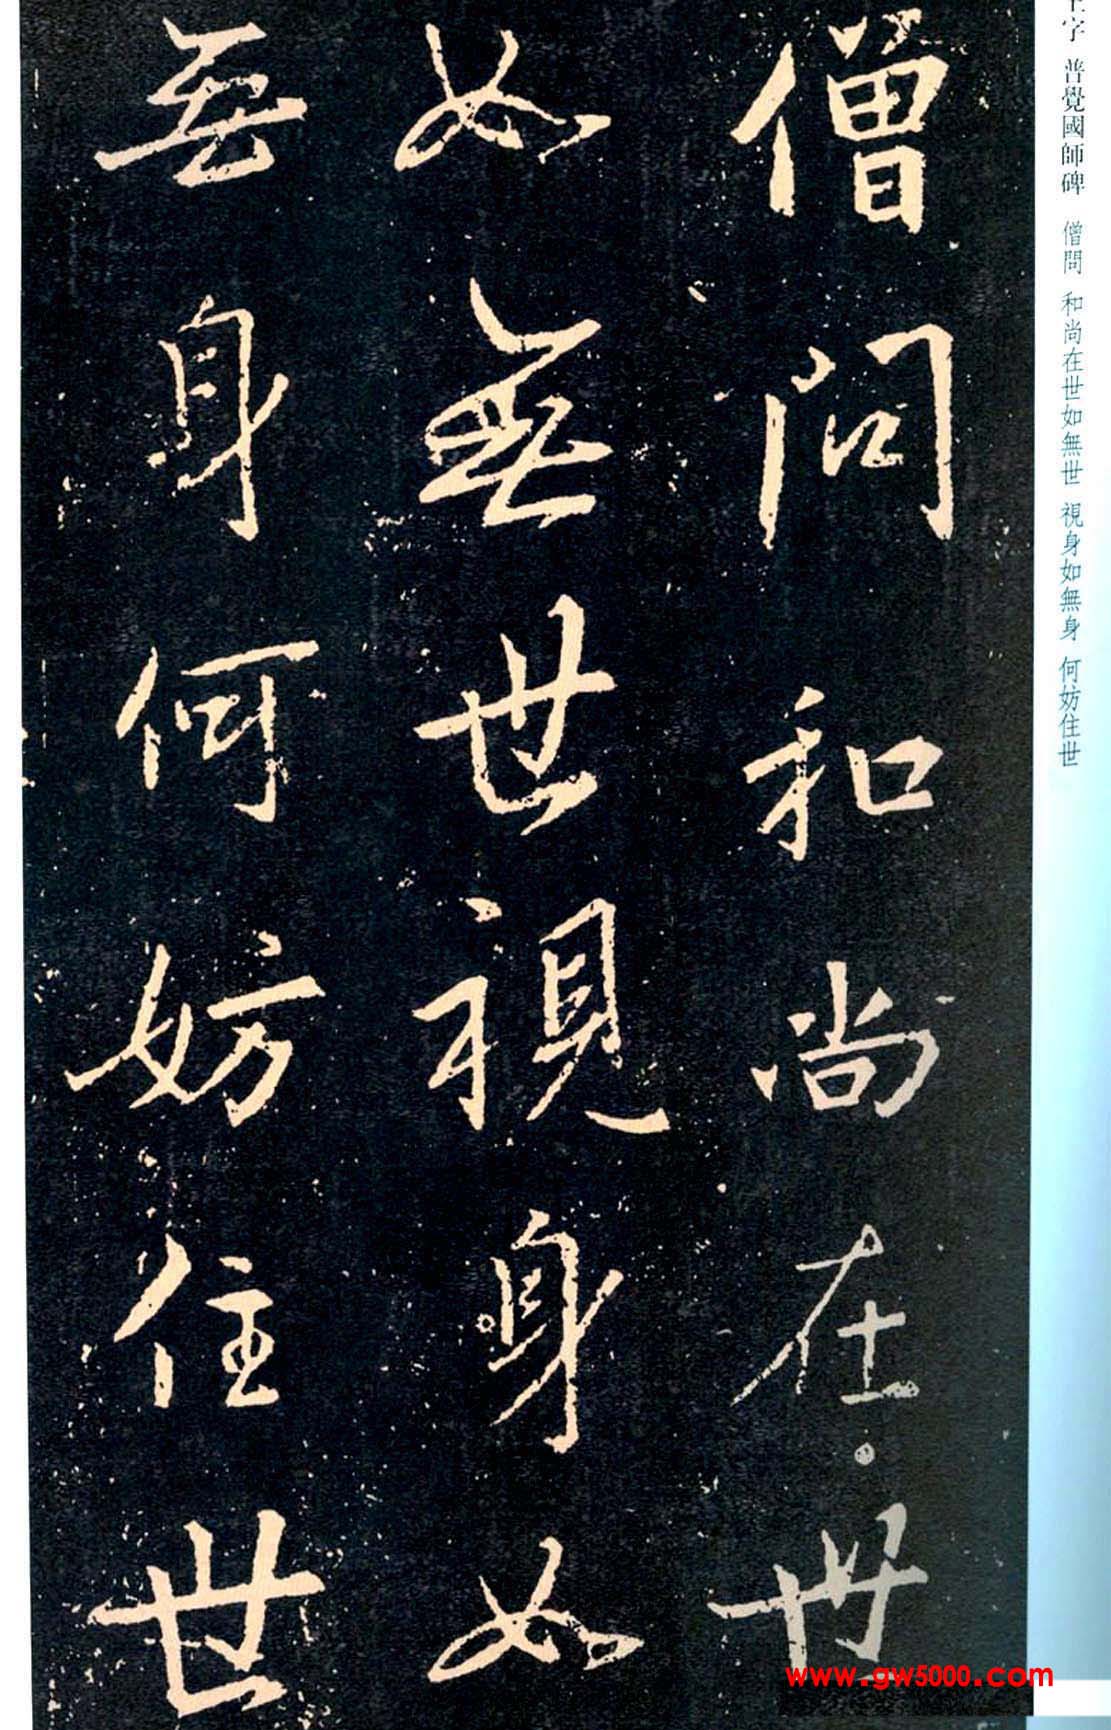 王字 普覺國師碑 僧問 和尚在世如無世 視身如無身 何妨住世
僧問和尚在世
如無世視身如
無身何妨住世
www.gw5000.com